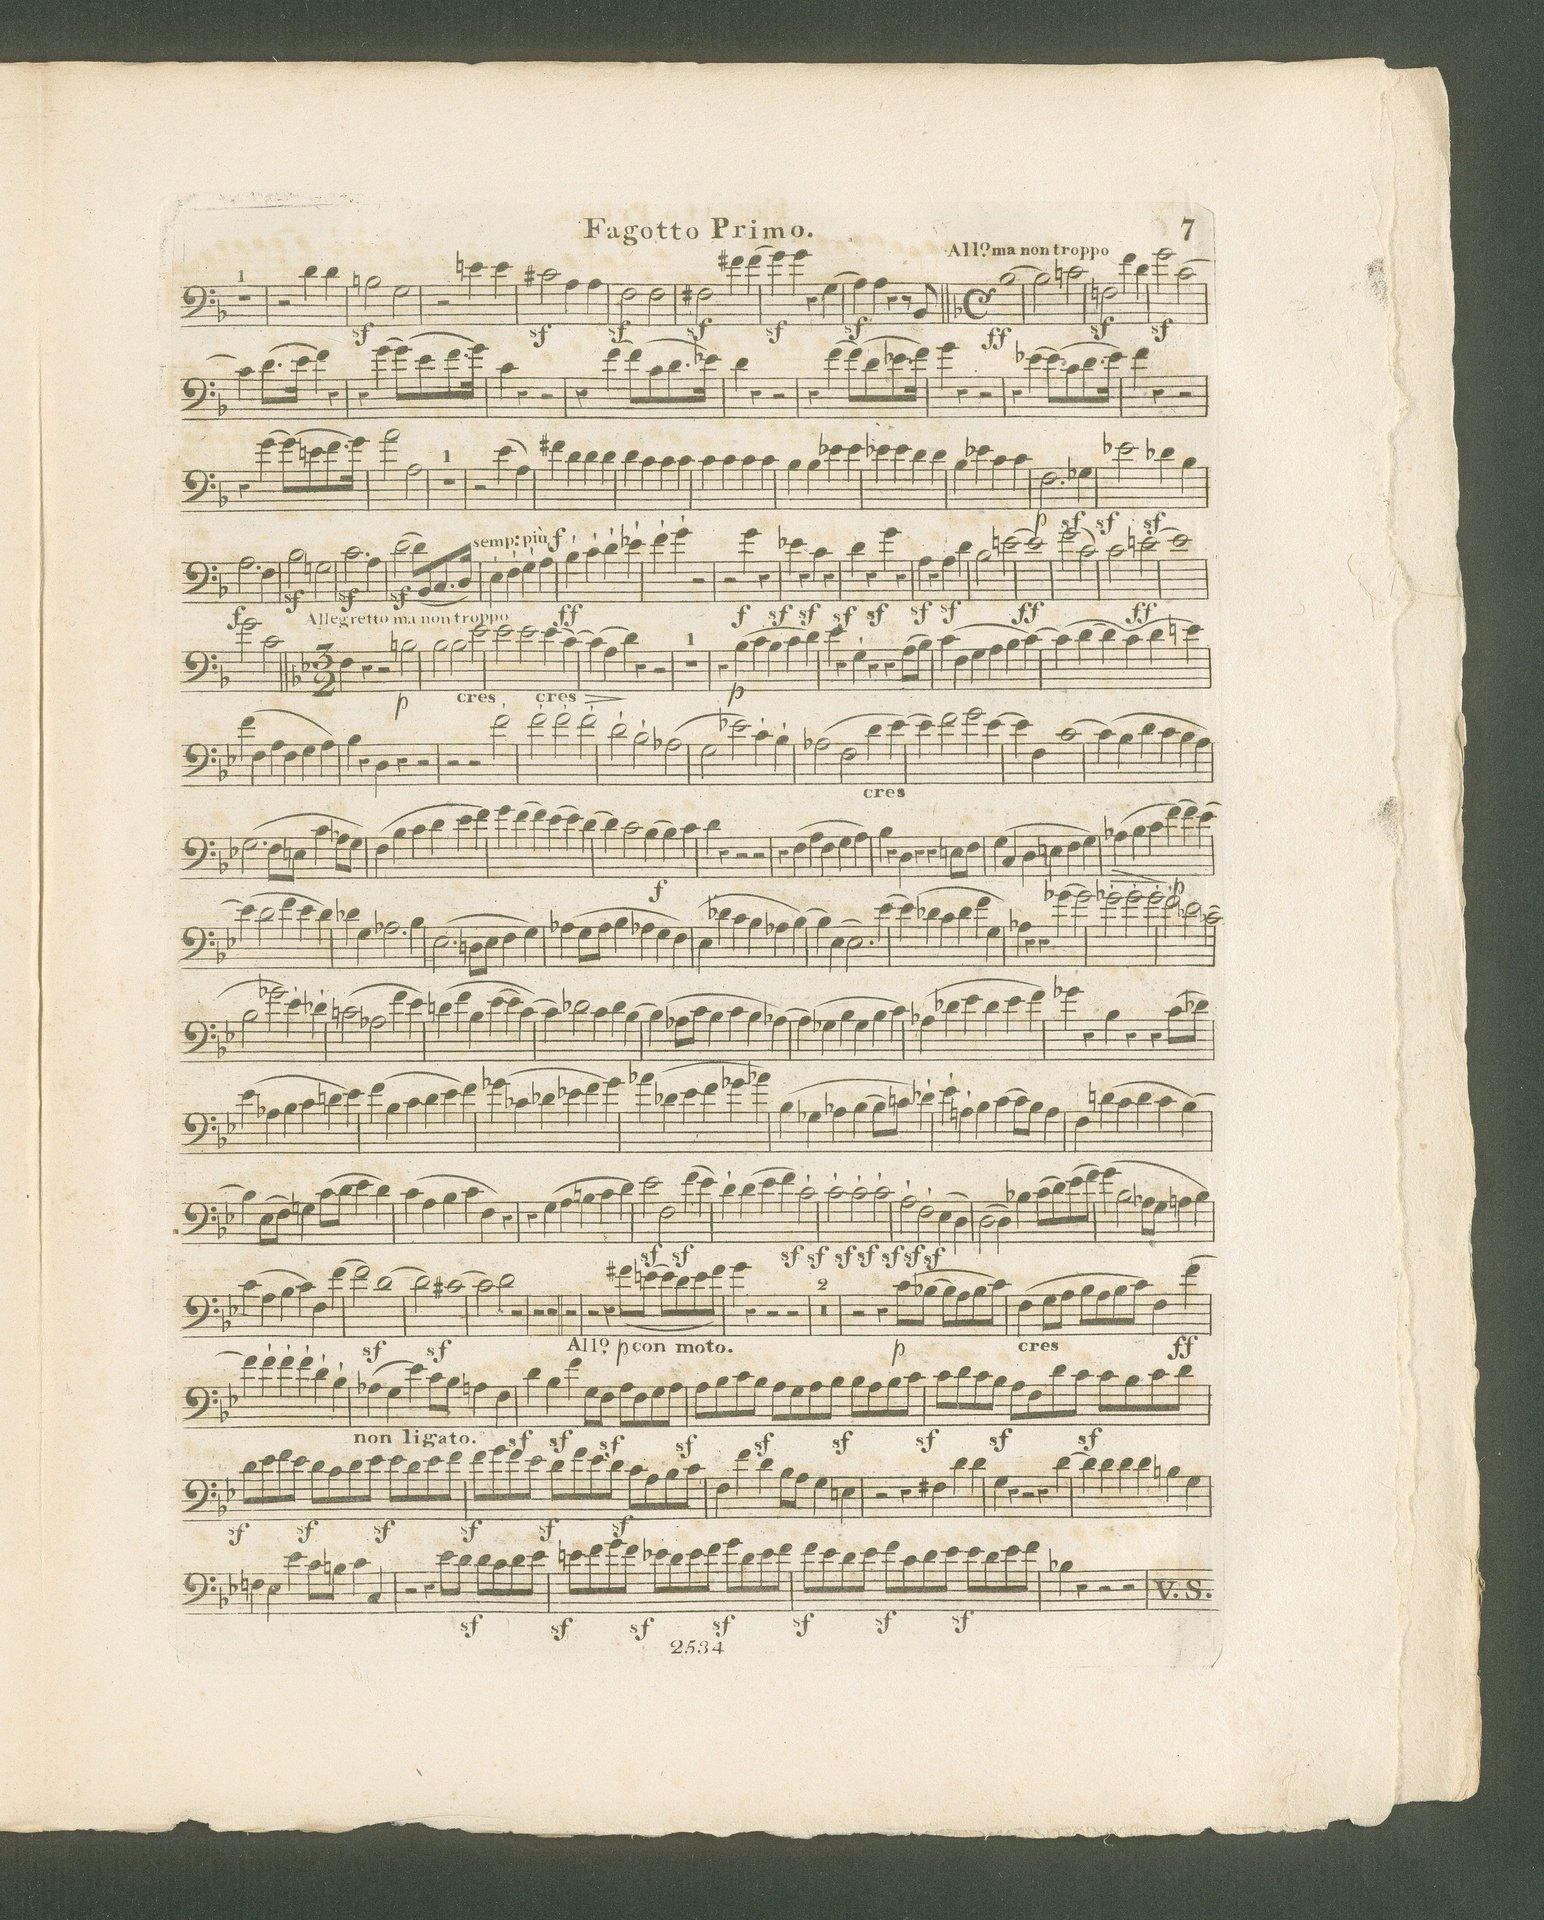 Fagotto Primo.
7
1
All.º ma non troppo
sf sf sf sf sf sf ff sf sf
1
p sf sf sf
semp: più f
f sf sf sf ff f sf sf sf sf sf sf ff ff
Allegretto ma non troppo
3
2
1
p cres cres p
cres
f p
sf sf sf sf sf sf sf sf sf
2
sf sf All.º p con moto. p cres ff
non ligato. sf sf sf sf sf sf sf sf sf
sf sf sf sf sf sf
V. S.
sf sf sf sf sf sf sf
2534